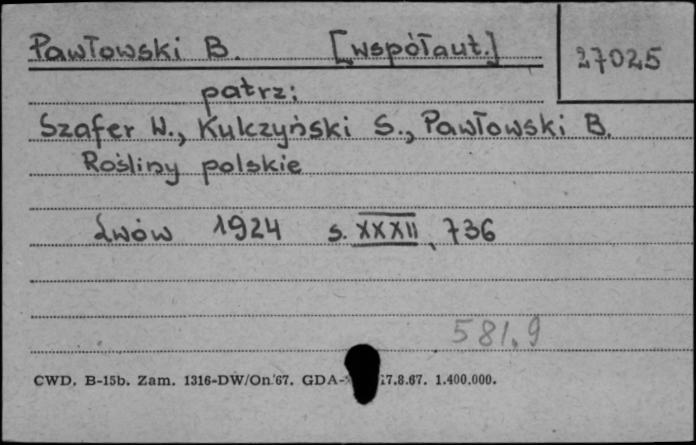 Pawłowski B. [współaut.]
27025
patrz:
Szafer W., Kulczyński S., Pawłowski B.
Rośliny polskie
Lwów 1924 s. XXXII, 736
581.9
CWD. B-15b. Zam. 1316-DW/On.'67. GDA- 17.8.67. 1.400.000.